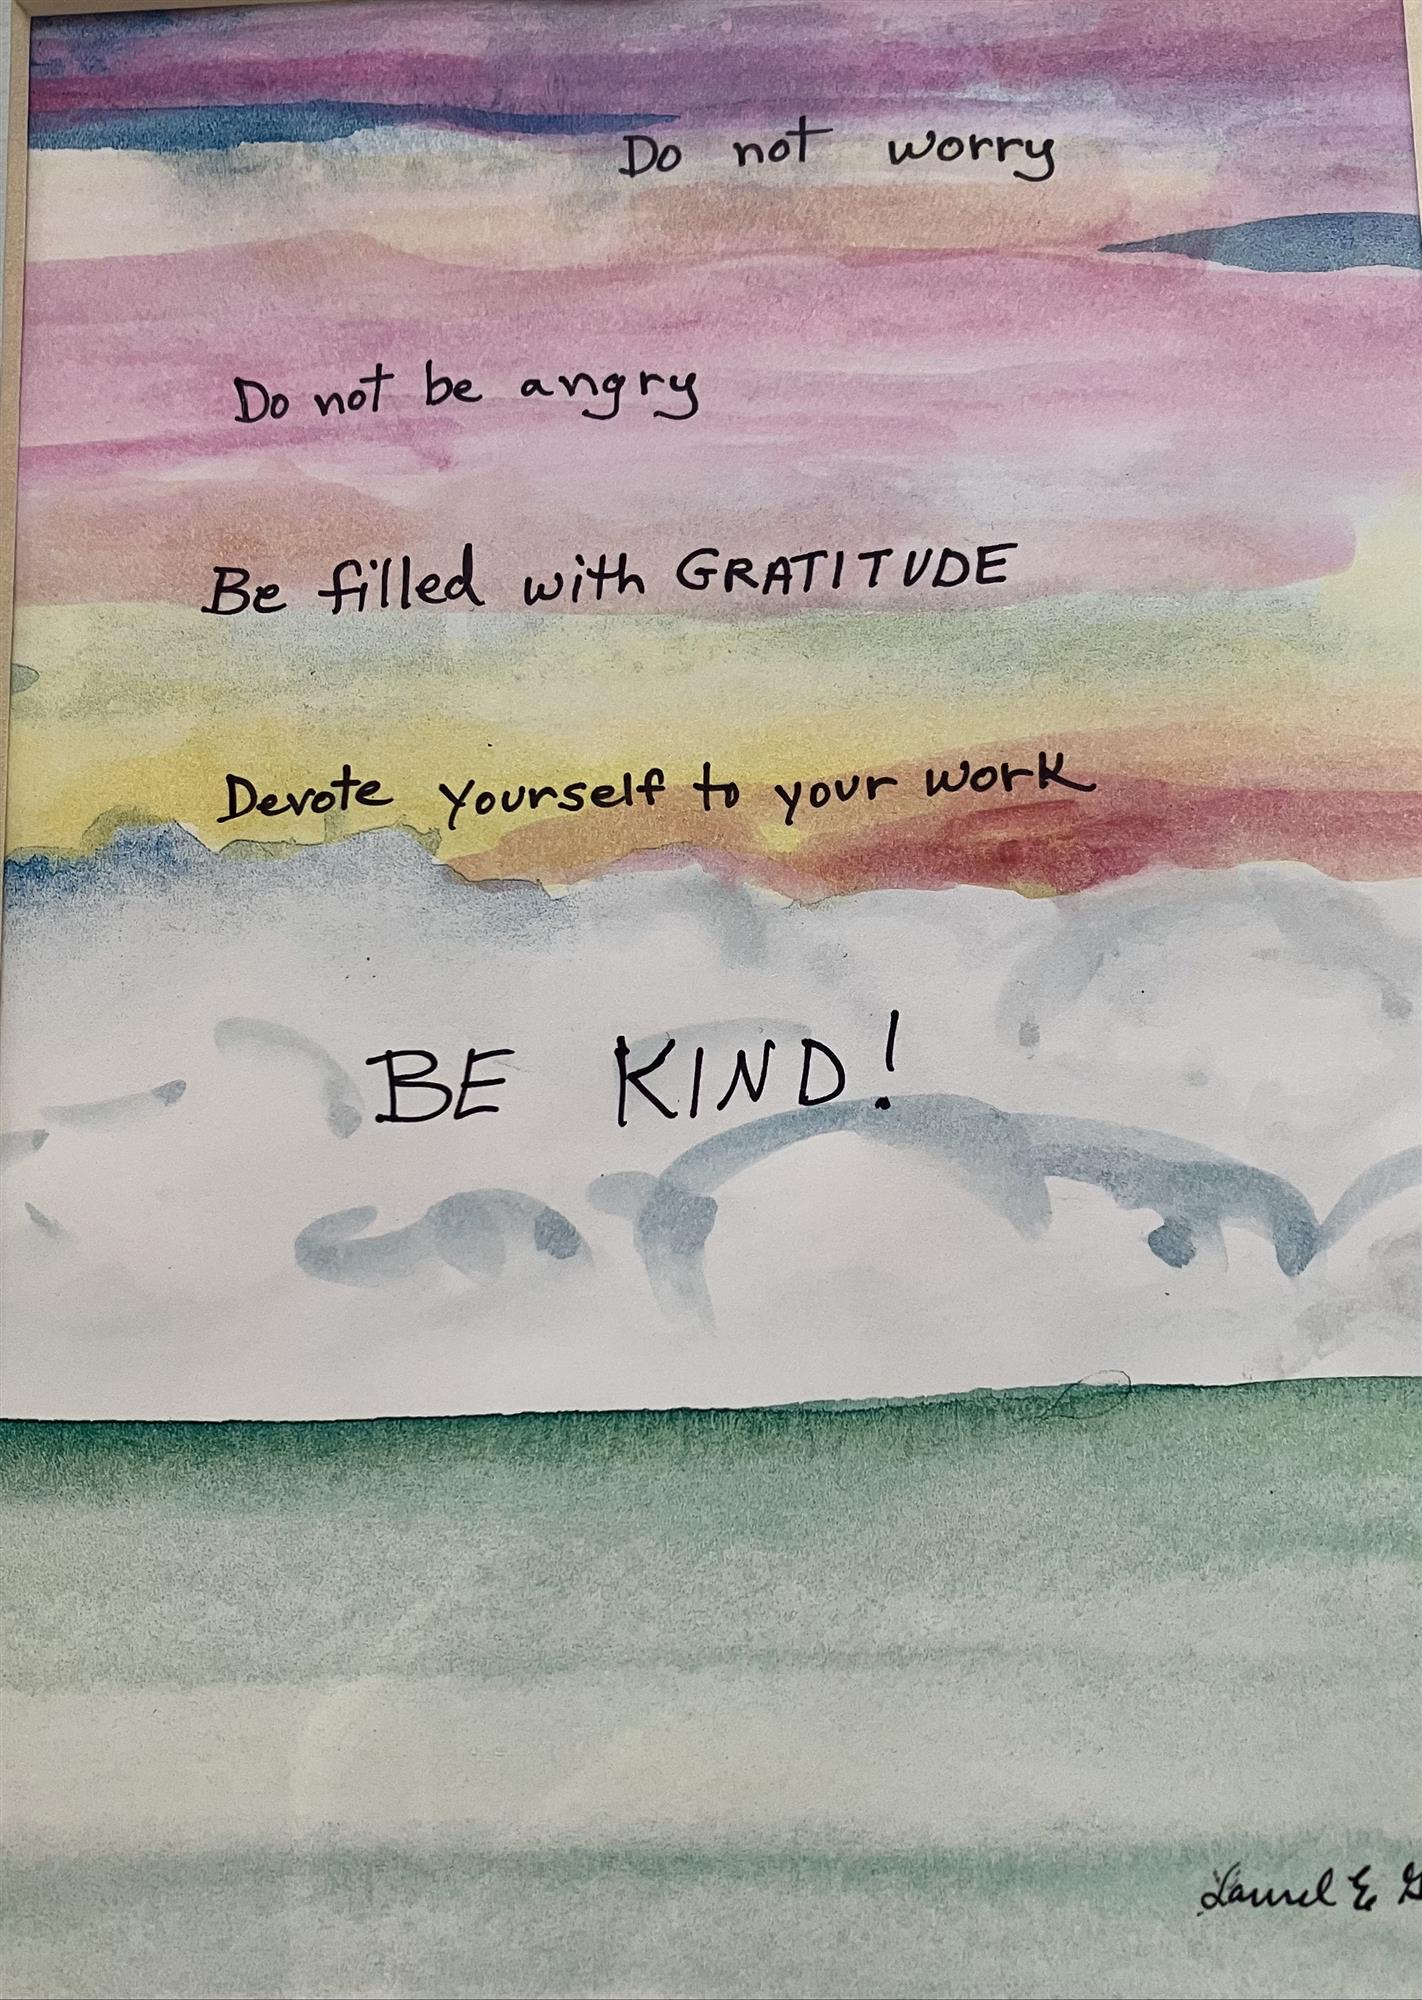 Do not worry
Do not be angry
Be filled with GRATITUDE
Devote yourself to your work
BE KIND!
Laurel E. G